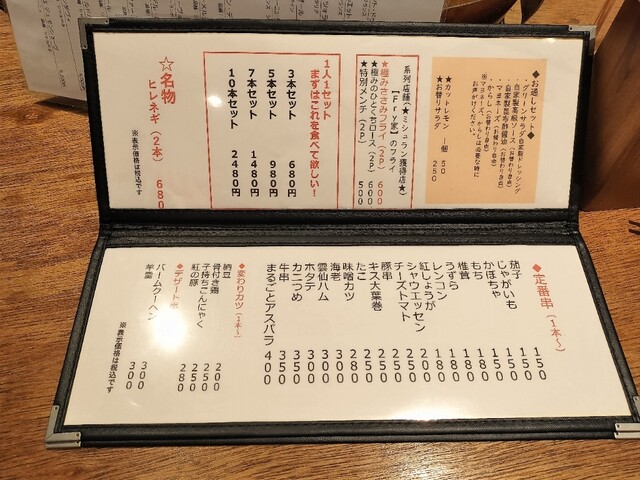 ◆お通しセット◆
・グリーンサラダ 自家製ドレッシング
自家製高級ソース(お替わり自由)
自家製昆布酢醤油(お替わり自由)
・マヨネーズ(お替わり自由)
・からし(お替わり自由)
※マヨネーズ、からしは必要な時に
お声がけください。
★カットレモン 一個 50
★お替りサラダ 250
系列店舗(★ミシュラン獲得店★)
【Fry家】のフライ
★極みささみフライ(2P) 600
★極みのひとくちロース(2P) 600
★特別メンチ(2P) 500
1人1セット
まずはこれを食べて欲しい!
3本セット 680円
5本セット 980円
7本セット 1480円
10本セット 2480円
☆名物
ヒレネギ(2本) 680
※表示価格は税込です
◆定番串(1本〜)
茄子 150
じゃがいも 150
かぼちゃ 150
もち 150
椎茸 180
うずら 180
レンコン 180
紅しょうが 180
シャウエッセン 200
チーズトマト 250
豚串 250
キス大葉巻 250
たこ 250
味噌カツ 280
海老 300
雲仙ハム 300
ホタテ 300
カニつめ 350
牛串 350
まるごとアスパラ 400
◆変わりカツ(1本〜)
納豆 200
骨付き鶏 250
子持ちこんにゃく 250
紅の豚 280
◆デザート
バームクーヘン 300
羊羹 300
※表示価格は税込です